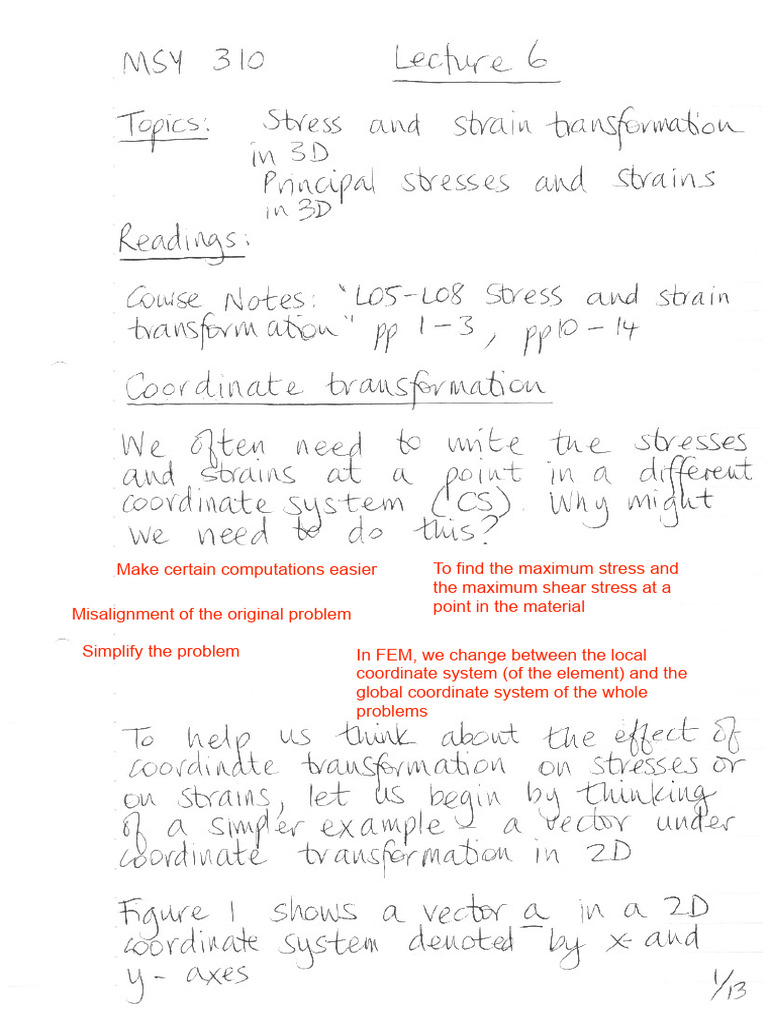 MSY 310 Lecture 6
Topics: Stress and strain transformation
in 3D
Principal stresses and strains
in 3D
Readings:
Course Notes: "L05-L08 Stress and strain
transformation" pp 1-3, pp10-14
Coordinate transformation
We often need to write the stresses
and strains at a point in a different
coordinate system (CS). Why might
we need to do this?
Make certain computations easier
To find the maximum stress and
the maximum shear stress at a
point in the material
Misalignment of the original problem
Simplify the problem
In FEM, we change between the local
coordinate system (of the element) and the
global coordinate system of the whole
problems
To help us think about the effect of
coordinate transformation on stresses or
on strains, let us begin by thinking
of a simpler example - a vector under
coordinate transformation in 2D
Figure 1 shows a vector a in a 2D
coordinate system denoted by x- and
y- axes
1/13